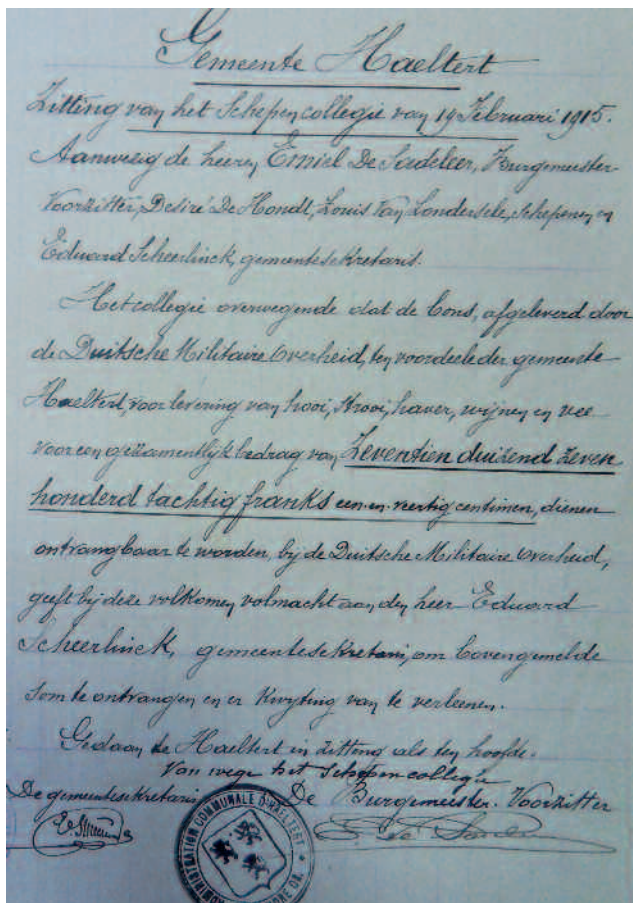 Gemeente Haeltert
Zitting van het Schepencollegie van 19 Februari 1915.
Aanwezig de heeren Emiel De Sadeleer, Burgemeester-
Voorzitter, Desiré De Hondt, Louis Van Londersele, Schepenen en
Eduard Scheerlinck, gemeentesekretaris.
Het collegie overwegende dat de bons, afgeleverd door
de Duitsche Militaire Overheid, ten voordeele der gemeente
Haeltert, voor levering van hooi, strooi, haver, wijnen en vee
voor een gezamentlijk bedrag van Zeventien duizend zeven
honderd tachtig franks een-en-veertig centimen, dienen
ontvangbaar te worden, bij de Duitsche Militaire Overheid,
geeft bij deze volkomen volmacht aan den heer Eduard
Scheerlinck, gemeentesekretaris, om bovengemelde
som te ontvangen en er kwijting van te verleenen.
Gedaan te Haeltert in zitting als ten hoofde.
Van wege het Schepencollegie
De gemeentesekretaris De Burgemeester-Voorzitter
ADMINISTRATION COMMUNALE D'HAELTERT